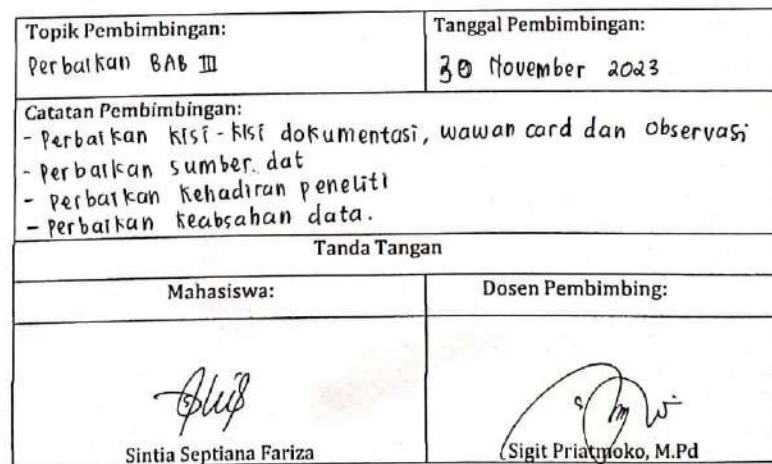 Topik Pembimbingan:
Perbaikan BAB III
Tanggal Pembimbingan:
30 November 2023
Catatan Pembimbingan:
- Perbaikan kisi-kisi dokumentasi, wawan card dan observasi
- Perbaikan sumber dat
- Perbaikan kehadiran peneliti
- Perbaikan keabsahan data.
Tanda Tangan
Mahasiswa:
Dosen Pembimbing:
Sintia Septiana Fariza
Sigit Priatmoko, M.Pd